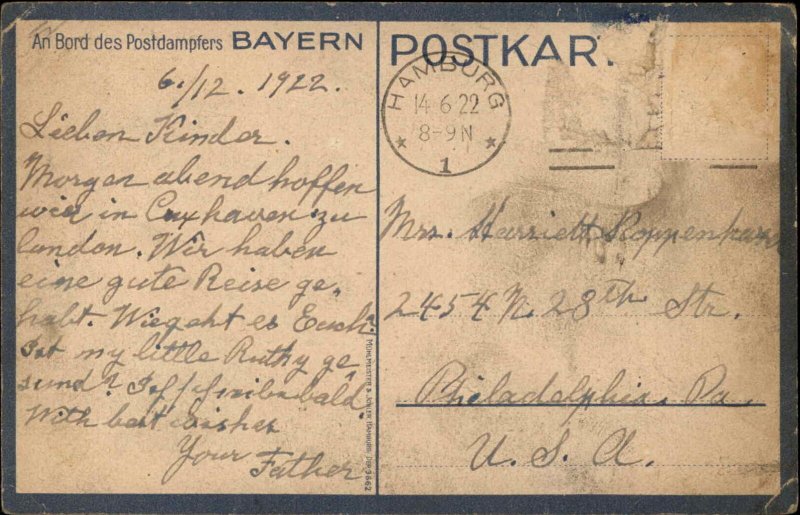 An Bord des Postdampfers BAYERN
6./12. 1922.
Lieben Kinder.
Morgen abend hoffen
wir in Cuxhaven zu
landon. Wir haben
eine gute Reise ge-
habt. Wie geht es Euch?
Ist my little Ruthy ge-
sund? Ich schreibe bald.
With best wishes
Your
Father
MÜHLMEISTER & JOHLER, HAMBURG
POSTKAR
HAMBURG
14.6.22
8-9N
1
Mrs. Harriett
2454 N. 28th Str.
Philadelphia, Pa.
U. S. A.